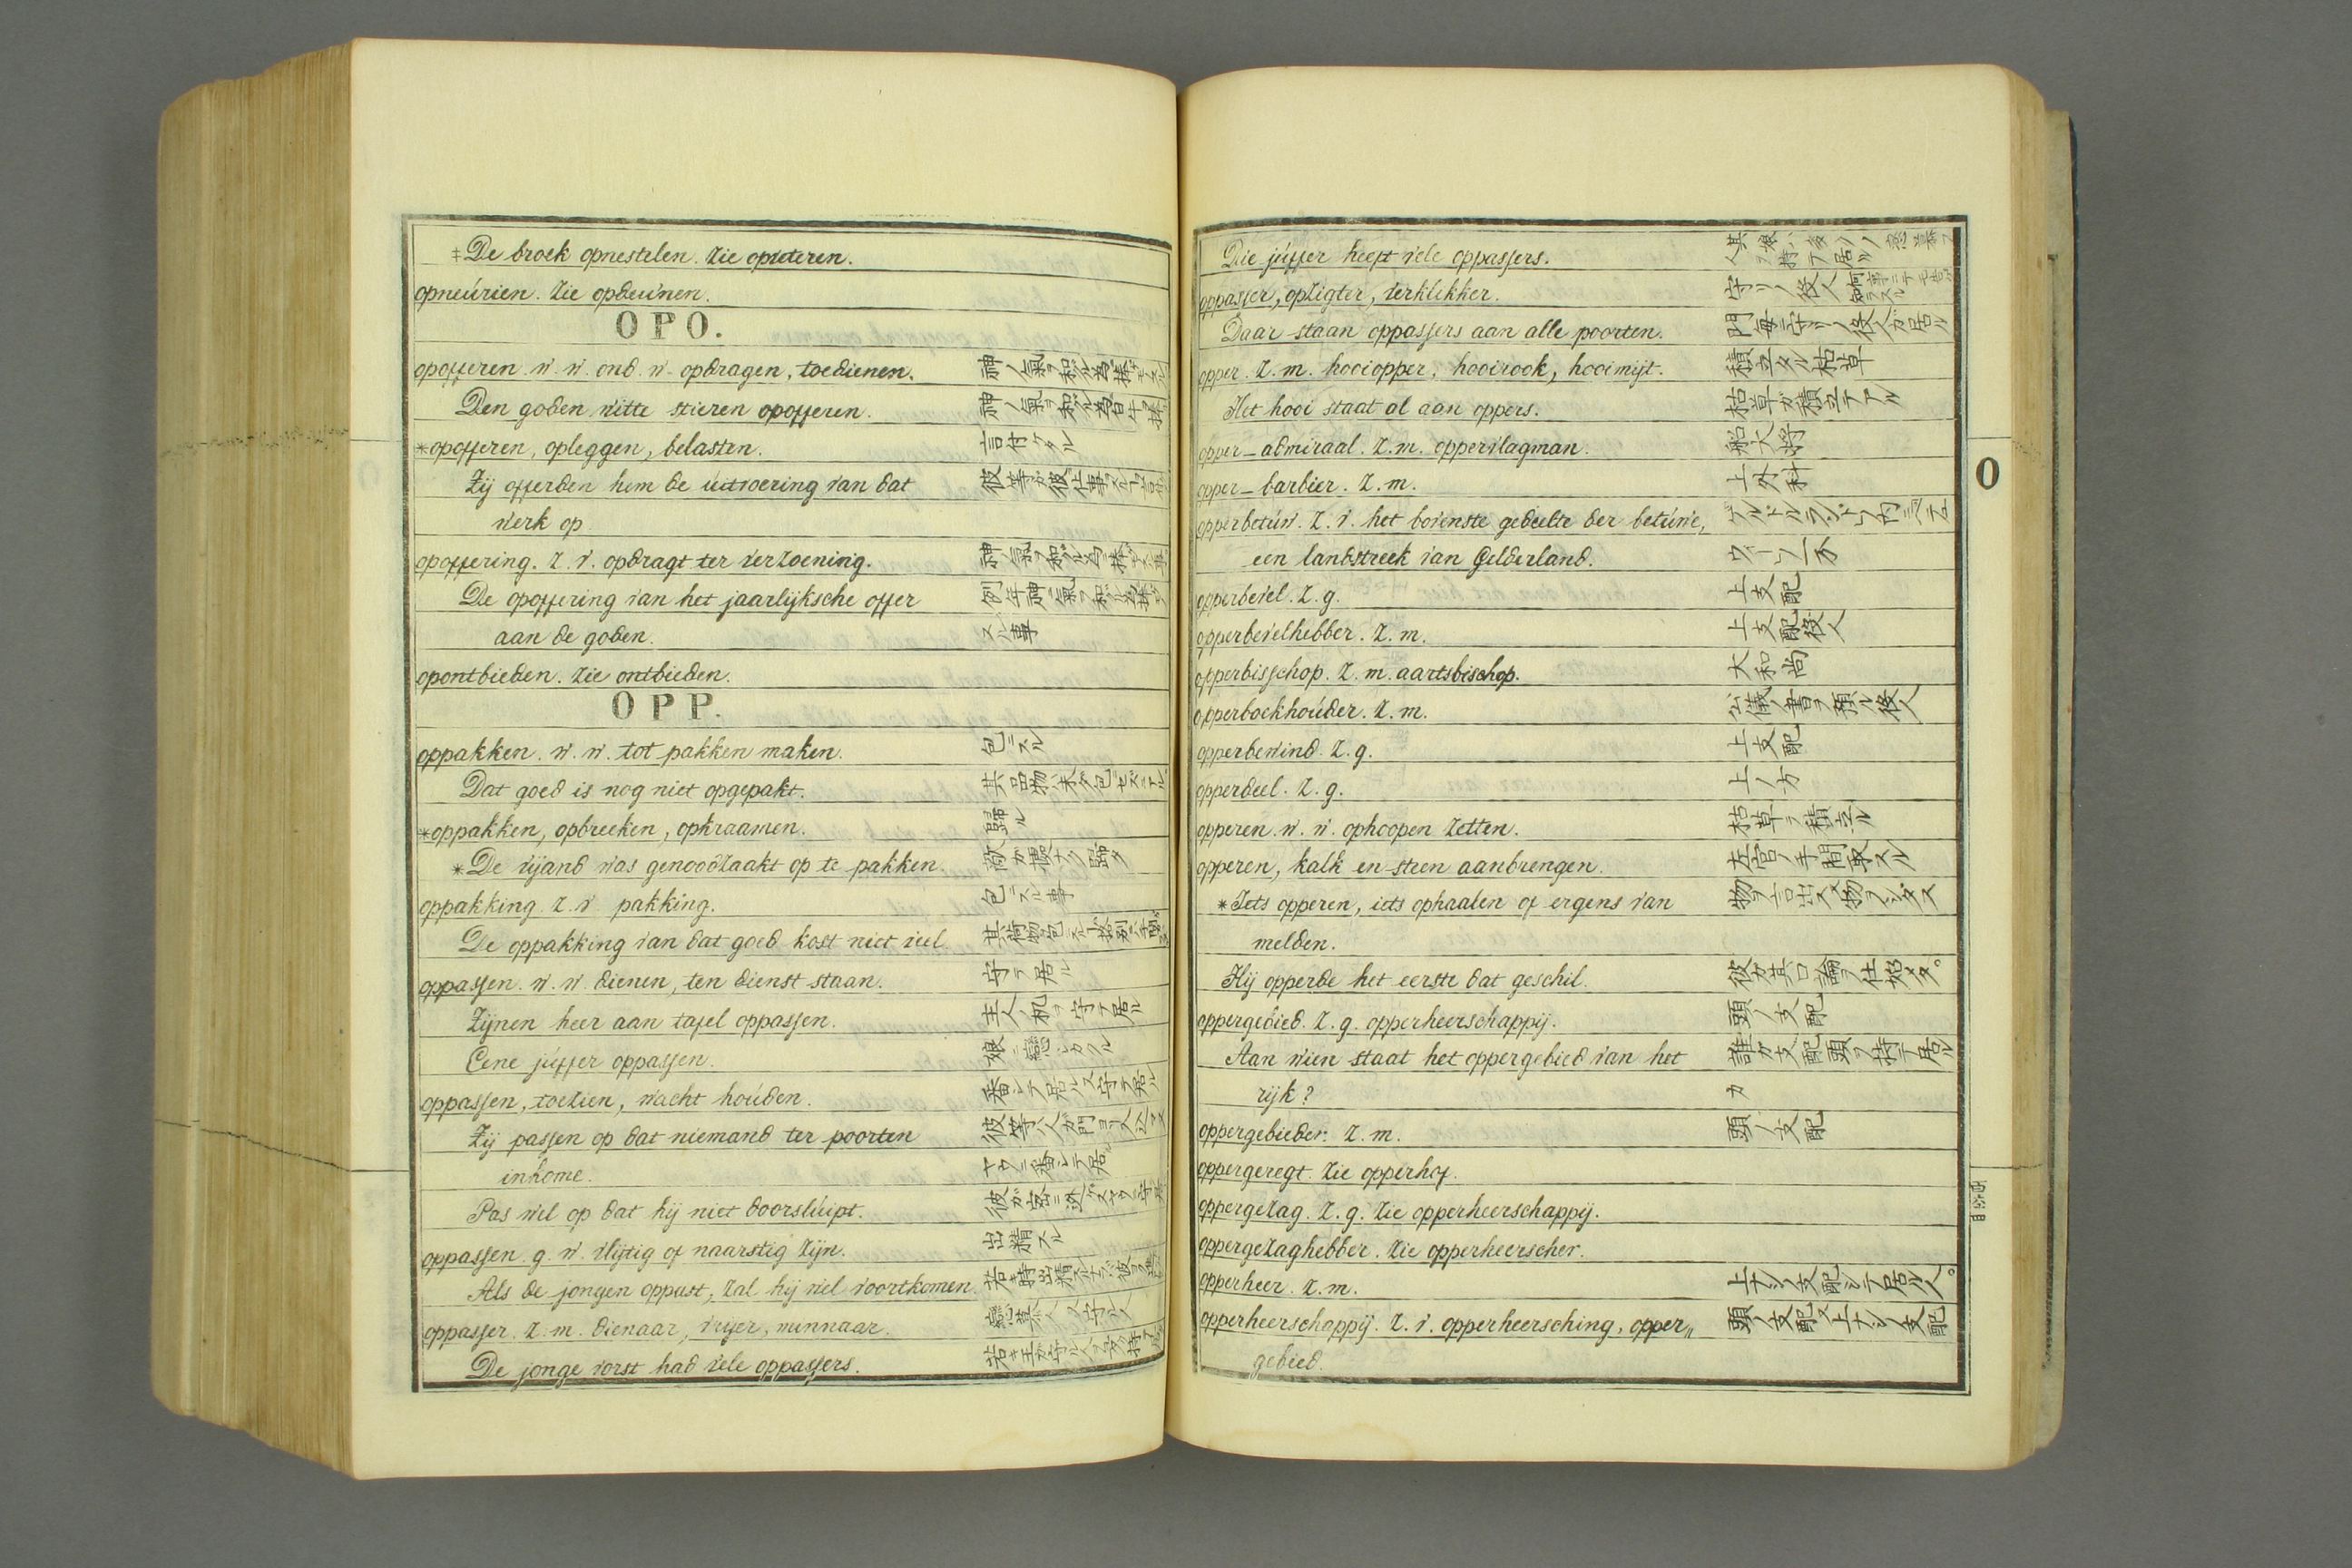 ‡De broek opnestelen. Zie opveteren.
opneurien. Zie opdeunen.
OPO.
opofferen. w. w. ond. w. opdragen, toedienen. 神ノ氣ヲ和ル為ニ捧ケモノスル
Den goden witte stieren opofferen. 神ノ氣ヲ和ル為ニ白牛ヲ捧
*opofferen, opleggen, belasten. 言付ケタル
Zij offerden hem de uitvoering van dat
werk op
opoffering. z. v. opdragt ter verzoening.
De opoffering van het jaarlijksche offer
aan de goden. スル事
opontbieden. Zie ontbieden.
OPP.
oppakken. w. w. tot pakken maken. 包ニスル
Dat goed is nog niet opgepakt. 其品物ハ未ダ包ニセズニアル
*oppakken, opbreeken, opkraamen. 歸ル
*De vijand was genoodzaakt op te pakken.
oppakking. z. v. pakking. 包ニスル事
De oppakking van dat goed kost niet veel.
oppassen. w. w. dienen, ten dienst staan. 守テ居ル
Zijnen heer aan tafel oppassen. 主人ノ机ヲ守テ居ル
Eene juffer oppassen.
oppassen, toezien, wacht houden. 番シテ居ル又守テ居ル
Zij passen op dat niemand ter poorten
inkome.
Pas wel op dat hij niet doorsluipt.
oppassen. g. w. vlijtig of naarstig zijn. 出精スル
Als de jongen oppast, zal hij wel voortkomen.
oppasser. z. m. dienaar, vryer, minnaar.
De jonge vorst had vele oppassers.
Die juffer heeft vele oppassers.
oppasser, opzigter, verklikker.
Daar staan oppassers aan alle poorten. 門毎ニ守リノ役人ガ居ル
opper. z. m. hooiopper, hooirook, hooimijt. 積立タル枯草
Het hooi staat al aan oppers. 枯草ガ積立テアル
opper-admiraal. z. m. oppervlagman. 船大将
opper-barbier. z. m. 上外科
opperbetuw. z. v. het bovenste gedeelte der betuwe,
een landstreek van Gelderland.
opperbevel. z. g. 上支配
opperbevelhebber. z. m. 上支配役人
opperbisschop. z. m. aartsbischop. 大和尚
opperboekhouder. z. m.
opperbewind. z. g. 上支配
opperdeel. z. g. 上ノ方
opperen. w. w. ophoopen zetten. 枯草ヲ積立ル
opperen, kalk en steen aanbrengen. 左官ノ手間取スル
*Iets opperen, iets ophaalen of ergens van
melden.
Hij opperde het eerste dat geschil. 彼ガ其口論ヲ仕始メタ。
oppergebied. z. g. opperheerschappij. 頭ノ支配
Aan wien staat het oppergebied van het 誰ガ支配頭ヲ持テ居ル
rijk? カ
oppergebieder. z. m. 頭ノ支配
oppergeregt. Zie opperhof.
oppergezag. z. g. Zie opperheerschappij.
oppergezaghebber. Zie opperheerscher.
opperheer. z. m. 上ナシノ支配シテ居ル人。
opperheerschappij. z. v. opperheersching, opper„ 頭ノ支配又上ナシノ支配
gebied.
O